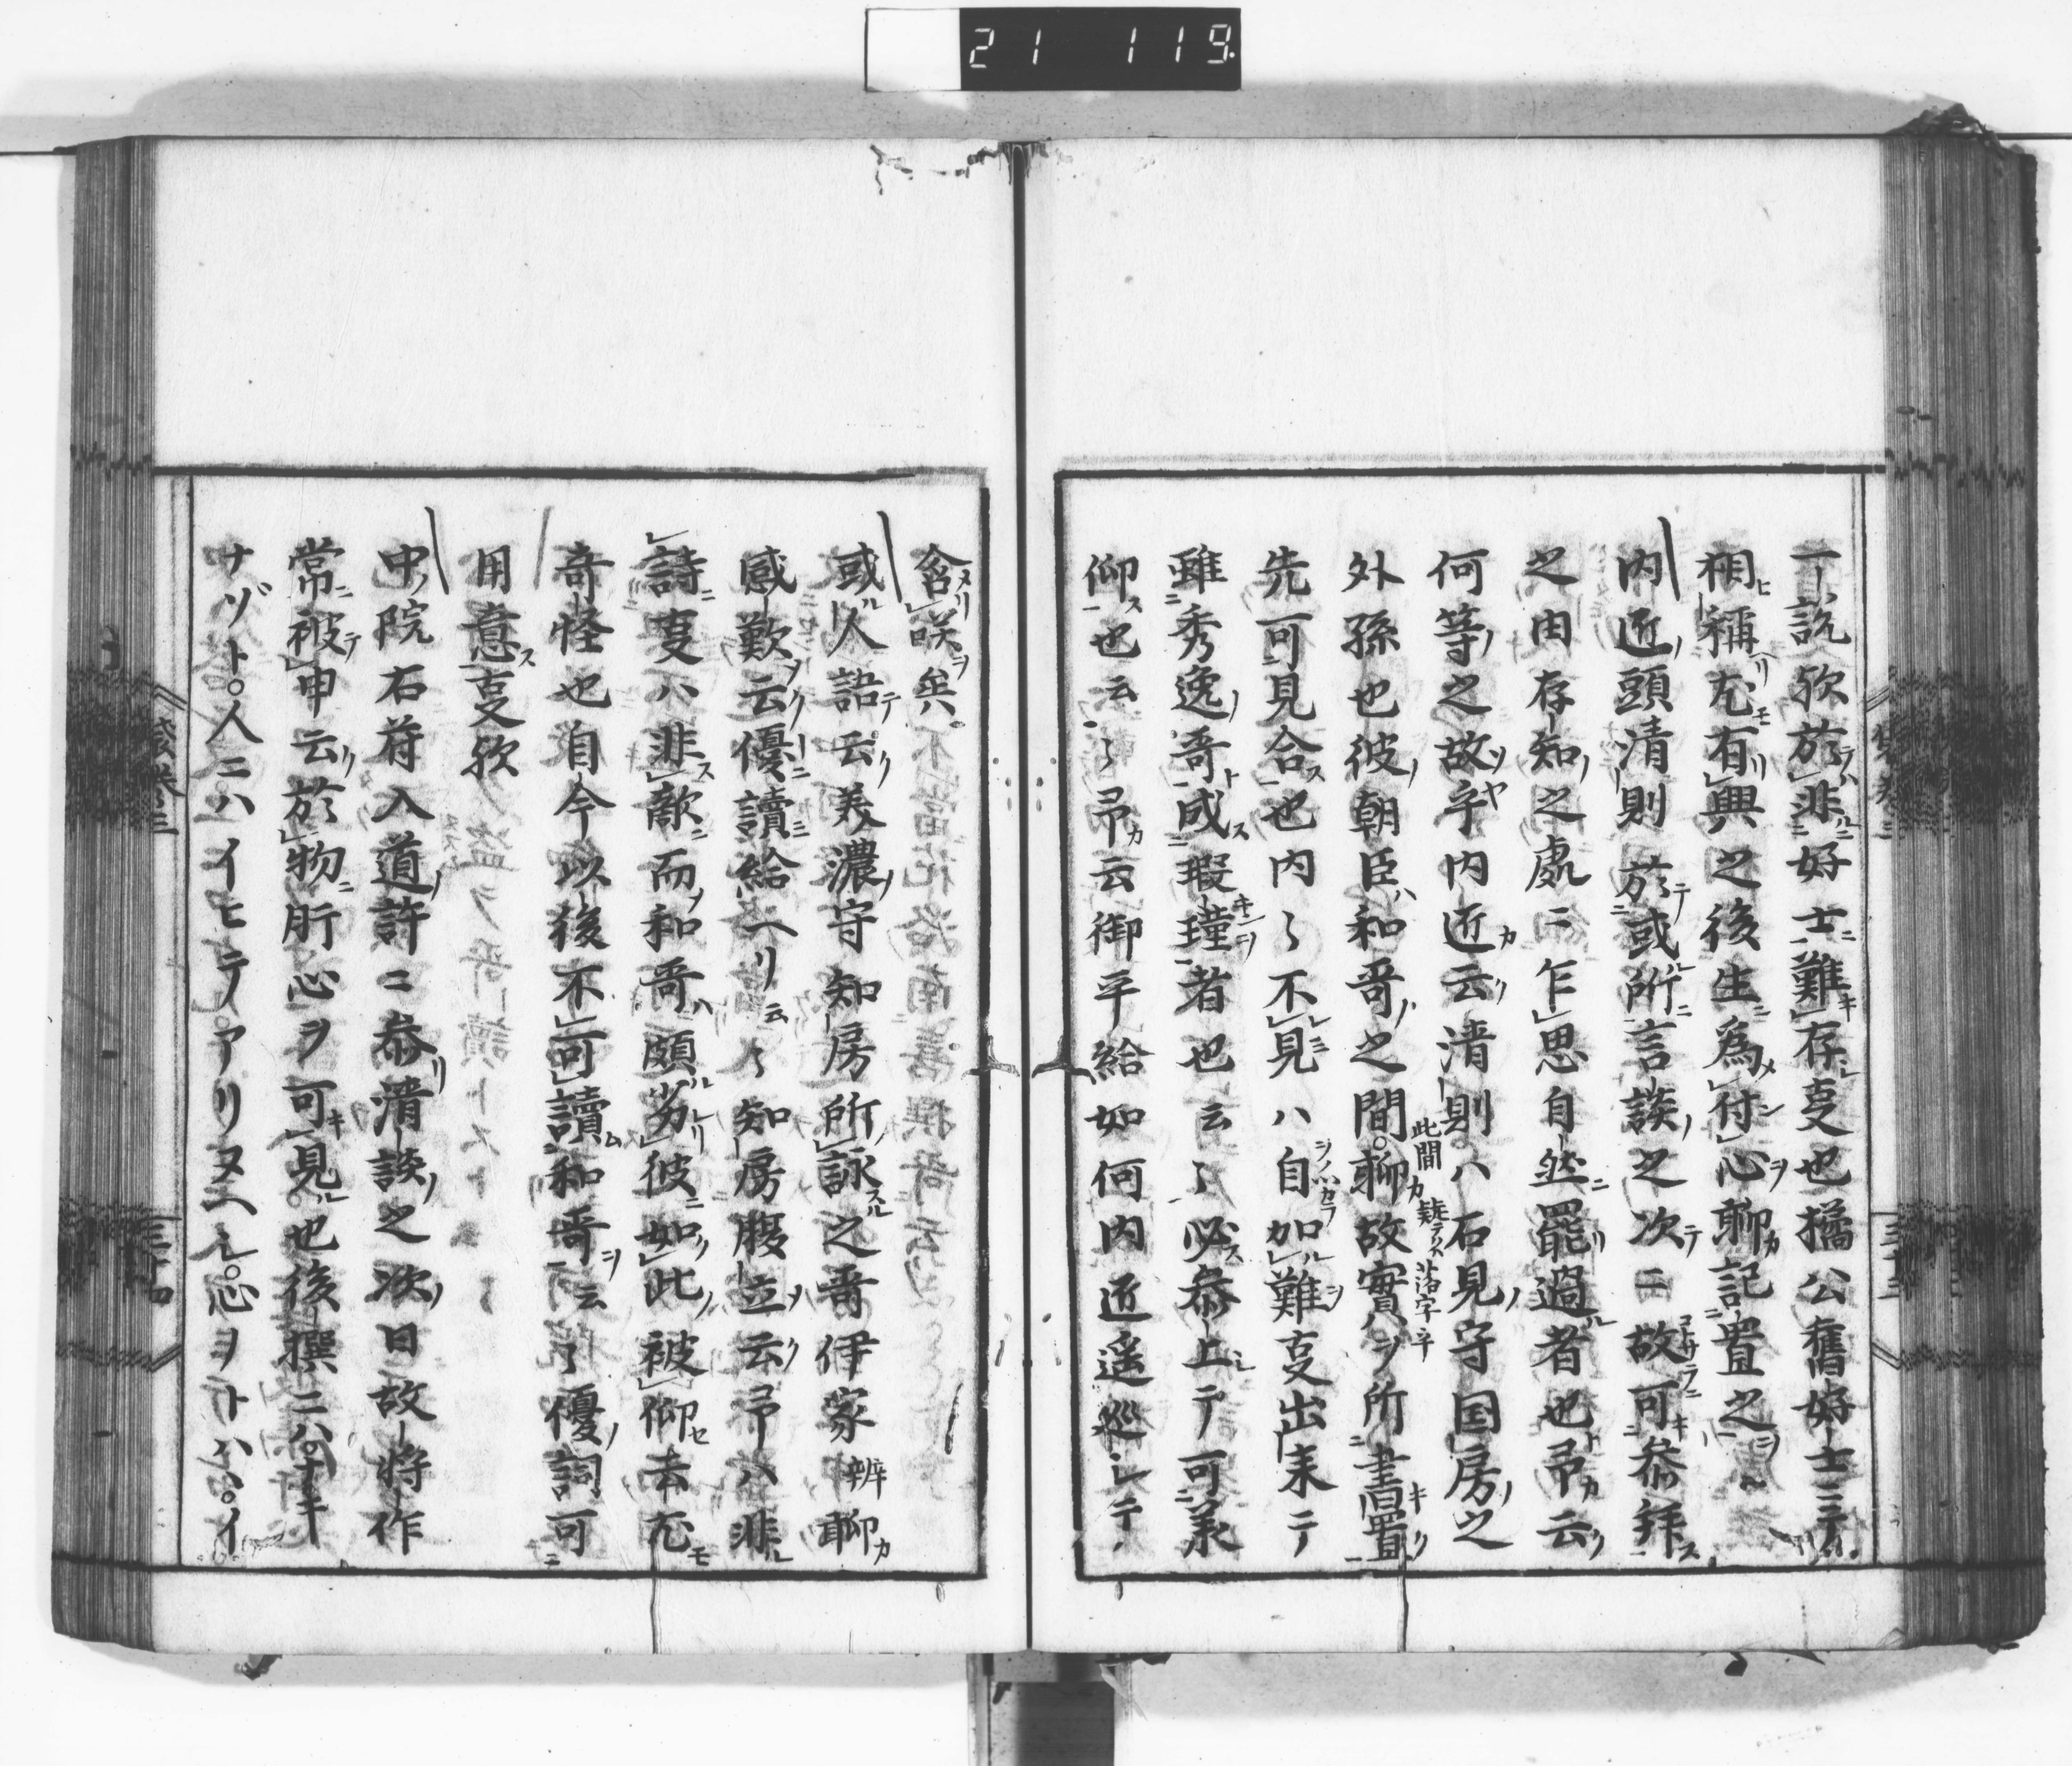 21 119.
一説歟於非好士難存叓也橘公舊好士ニテ
相稱尤有興之後生為付心聊記置之
内近頭清則於或所言談之次ニ故可参拜
之由存知之處ニ乍思自然罷過者也弔云
何等之故乎内近云清則ハ石見守国房之
外孫也彼朝臣和哥之間聊故實ヲ所書置
此間カ疑テハ落字乎
先可見合也内〻不見ハ自加難叓出来ニテ
雖秀逸哥成瑕瑾者也云〻必参上テ可義
仰也云〻弔云御平給如何内近遥巡シテ
含咲矣
或人語云美濃守知房所詠之哥伊家辨聊
感歎云優讀給ヘリ云〻知房腹立云弔ハ非
詩叓ハ非敵而和哥頗劣彼如此被仰去尤
奇怪也自今以後不可讀和哥云〻優詞可
用意叓歟
中院右苻入道許ニ参清談之次日故将作
常被申云於物肝心ヲ可見也後撰ニハナキ
ナゾト人ニハイヒテノアリヌヘシ心ヲトハハイ